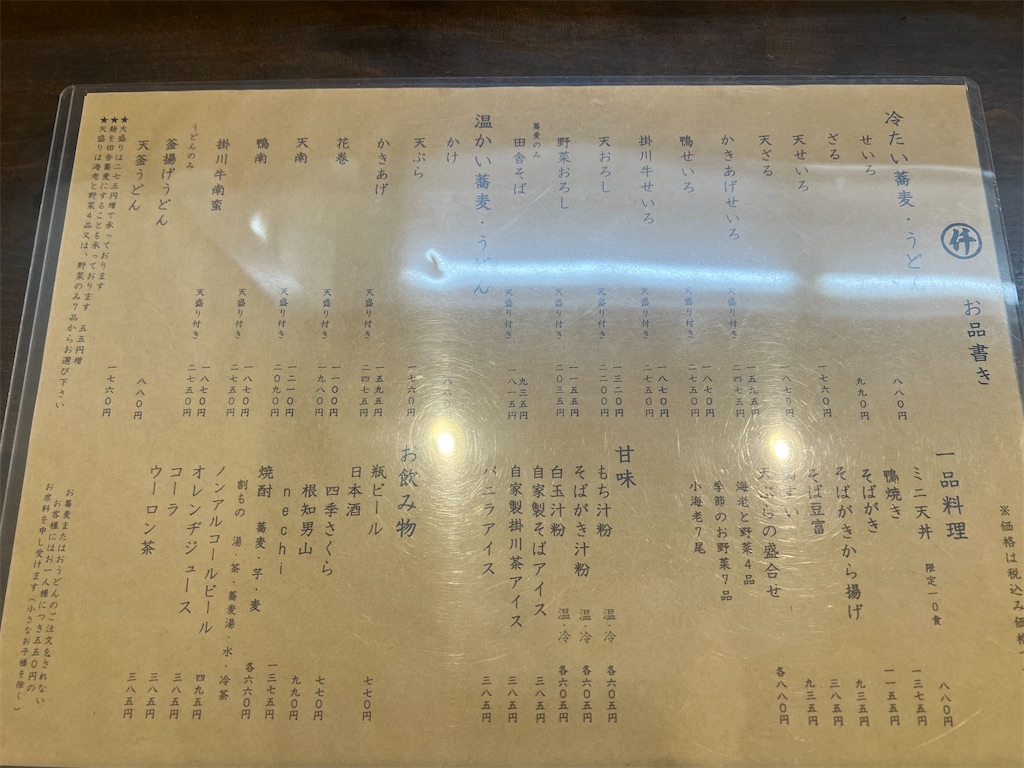 ※価格は税込み価格
仟 お品書き
冷たい蕎麦・うどん
せいろ 八八〇円
ざる 九九〇円
天せいろ 一七六〇円
天ざる 一八七〇円
かきあげせいろ 一五九五円
天盛り付き 二四七五円
鴨せいろ 一八七〇円
天盛り付き 二七五〇円
掛川牛せいろ 一八七〇円
天盛り付き 二七五〇円
天おろし 一三二〇円
天盛り付き 二二〇〇円
野菜おろし 一一五五円
天盛り付き 二〇三五円
蕎麦のみ
田舎そば 九三五円
天盛り付き 一八一五円
温かい蕎麦・うどん
かけ 八八〇円
天ぷら 一七六〇円
かきあげ 一五九五円
天盛り付き 二四七五円
花巻 一一〇〇円
天盛り付き 一九八〇円
天南 一二一〇円
天盛り付き 二〇九〇円
鴨南 一八七〇円
天盛り付き 二七五〇円
掛川牛南蛮 一八七〇円
天盛り付き 二七五〇円
うどんのみ
釜揚げうどん 八八〇円
天釜うどん 一七六〇円
★大盛りは二七五円増で承っております
★麺を田舎蕎麦にすることも承っております 五五円増
★天盛りは海老と野菜4品又は、野菜のみ7品からお選び下さい
一品料理
ミニ天丼 限定一〇食 八八〇円
鴨焼き 一三七五円
そばがき 一一五五円
そばがきから揚げ 九三五円
そば豆富 三八五円
まい 九三五円
天ぷらの盛合せ 各八八〇円
海老と野菜4品
季節のお野菜7品
小海老7尾
甘味
もち汁粉 温・冷 各六〇五円
そばがき汁粉 温・冷 各六〇五円
白玉汁粉 温・冷 各六〇五円
自家製そばアイス 三八五円
自家製掛川茶アイス 三八五円
バニラアイス 三八五円
お飲み物
瓶ビール 七七〇円
日本酒
四季さくら 七七〇円
根知男山 九九〇円
nechi 一三七五円
焼酎 蕎麦・芋・麦 各六六〇円
割もの 湯・茶・蕎麦湯・水・冷茶
ノンアルコールビール 四九五円
オレンヂジュース 三八五円
コーラ 三八五円
ウーロン茶 三八五円
お蕎麦またはおうどんのご注文をされない
お客様にはお一人様につき五五〇円の
お席料を申し受けます(小さなお子様を除く)